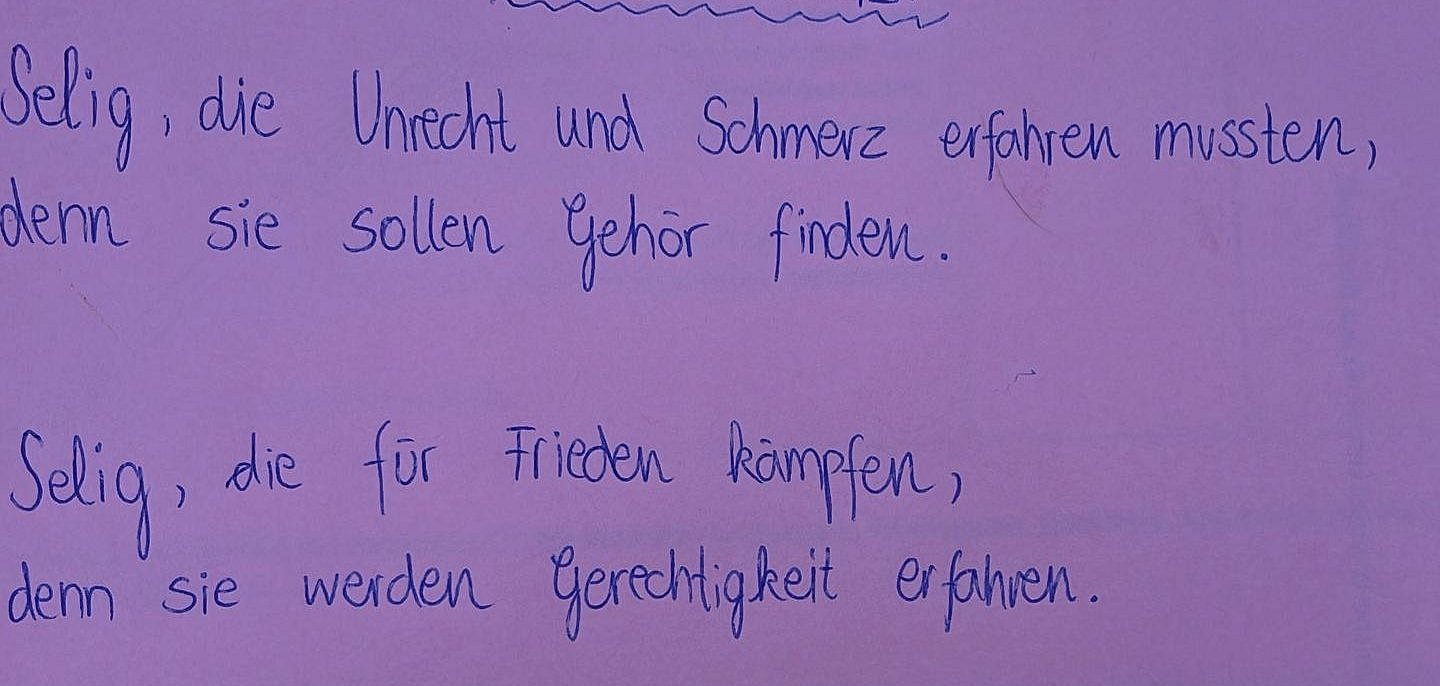 Selig, die Unrecht und Schmerz erfahren mussten,
denn sie sollen Gehör finden.
Selig, die für Frieden kämpfen,
denn sie werden Gerechtigkeit erfahren.